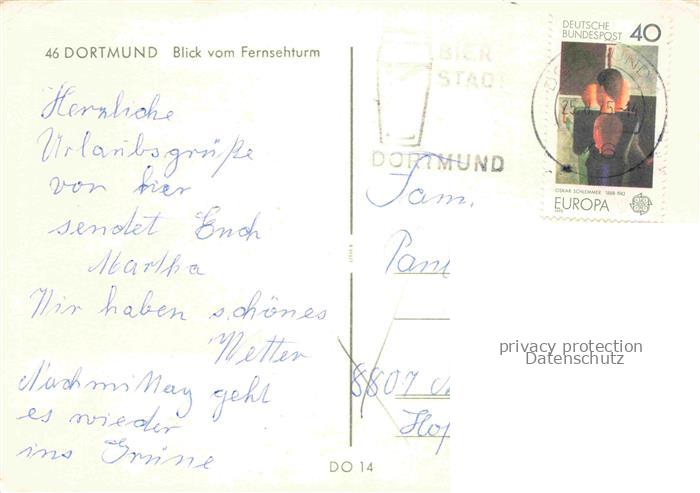 46 DORTMUND Blick vom Fernsehturm
Herzliche
Urlaubsgrüße
von hier
sendet Euch
Martha
Wir haben schönes
Wetter
Nachmittag geht
es wieder
ins Grüne
BIER
STADT
DORTMUND
DEUTSCHE
BUNDESPOST 40
OSKAR SCHLEMMER 1888-1943
EUROPA
Fam.
8807
DO 14
privacy protection
Datenschutz